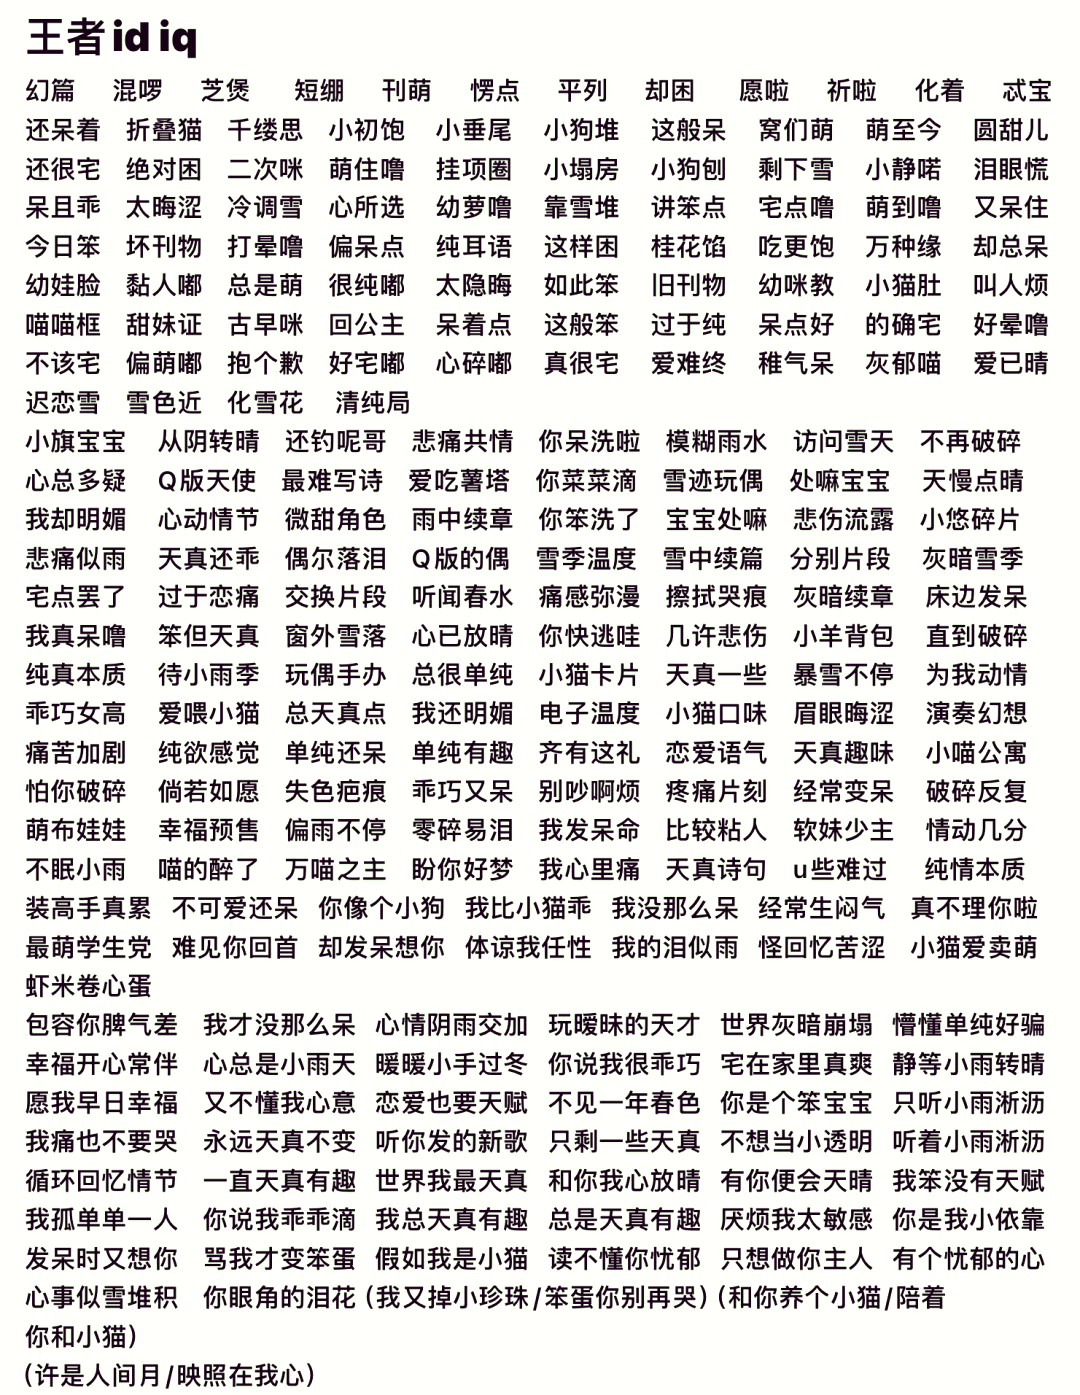 王者id iq
幻篇 混啰 芝煲 短绷 刊萌 愣点 平列 却困 愿啦 祈啦 化着 忒宝
还呆着 折叠猫 千缕思 小初饱 小垂尾 小狗堆 这般呆 窝们萌 萌至今 圆甜儿
还很宅 绝对困 二次咪 萌住噜 挂项圈 小塌房 小狗刨 剩下雪 小静喏 泪眼慌
呆且乖 太晦涩 冷调雪 心所选 幼萝噜 靠雪堆 讲笨点 宅点噜 萌到噜 又呆住
今日笨 坏刊物 打晕噜 偏呆点 纯耳语 这样困 桂花馅 吃更饱 万种缘 却总呆
幼娃脸 黏人嘟 总是萌 很纯嘟 太隐晦 如此笨 旧刊物 幼咪教 小猫肚 叫人烦
喵喵框 甜妹证 古早咪 回公主 呆着点 这般笨 过于纯 呆点好 的确宅 好晕噜
不该宅 偏萌嘟 抱个歉 好宅嘟 心碎嘟 真很宅 爱难终 稚气呆 灰郁喵 爱已晴
迟恋雪 雪色近 化雪花 清纯局
小旗宝宝 从阴转晴 还钓呢哥 悲痛共情 你呆洗啦 模糊雨水 访问雪天 不再破碎
心总多疑 Q版天使 最难写诗 爱吃薯塔 你菜菜滴 雪迹玩偶 处嘛宝宝 天慢点晴
我却明媚 心动情节 微甜角色 雨中续章 你笨洗了 宝宝处嘛 悲伤流露 小悠碎片
悲痛似雨 天真还乖 偶尔落泪 Q版的偶 雪季温度 雪中续篇 分别片段 灰暗雪季
宅点罢了 过于恋痛 交换片段 听闻春水 痛感弥漫 擦拭哭痕 灰暗续章 床边发呆
我真呆噜 笨但天真 窗外雪落 心已放晴 你快逃哇 几许悲伤 小羊背包 直到破碎
纯真本质 待小雨季 玩偶手办 总很单纯 小猫卡片 天真一些 暴雪不停 为我动情
乖巧女高 爱喂小猫 总天真点 我还明媚 电子温度 小猫口味 眉眼晦涩 演奏幻想
痛苦加剧 纯欲感觉 单纯还呆 单纯有趣 齐有这礼 恋爱语气 天真趣味 小喵公寓
怕你破碎 倘若如愿 失色疤痕 乖巧又呆 别吵啊烦 疼痛片刻 经常变呆 破碎反复
萌布娃娃 幸福预售 偏雨不停 零碎易泪 我发呆命 比较粘人 软妹少主 情动几分
不眠小雨 喵的醉了 万喵之主 盼你好梦 我心里痛 天真诗句 u些难过 纯情本质
装高手真累 不可爱还呆 你像个小狗 我比小猫乖 我没那么呆 经常生闷气 真不理你啦
最萌学生党 难见你回首 却发呆想你 体谅我任性 我的泪似雨 怪回忆苦涩 小猫爱卖萌
虾米卷心蛋
包容你脾气差 我才没那么呆 心情阴雨交加 玩暧昧的天才 世界灰暗崩塌 懵懂单纯好骗
幸福开心常伴 心总是小雨天 暖暖小手过冬 你说我很乖巧 宅在家里真爽 静等小雨转晴
愿我早日幸福 又不懂我心意 恋爱也要天赋 不见一年春色 你是个笨宝宝 只听小雨淅沥
我痛也不要哭 永远天真不变 听你发的新歌 只剩一些天真 不想当小透明 听着小雨淅沥
循环回忆情节 一直天真有趣 世界我最天真 和你我心放晴 有你便会天晴 我笨没有天赋
我孤单单一人 你说我乖乖滴 我总天真有趣 总是天真有趣 厌烦我太敏感 你是我小依靠
发呆时又想你 骂我才变笨蛋 假如我是小猫 读不懂你忧郁 只想做你主人 有个忧郁的心
心事似雪堆积 你眼角的泪花（我又掉小珍珠/笨蛋你别再哭）（和你养个小猫/陪着
你和小猫）
（许是人间月/映照在我心）